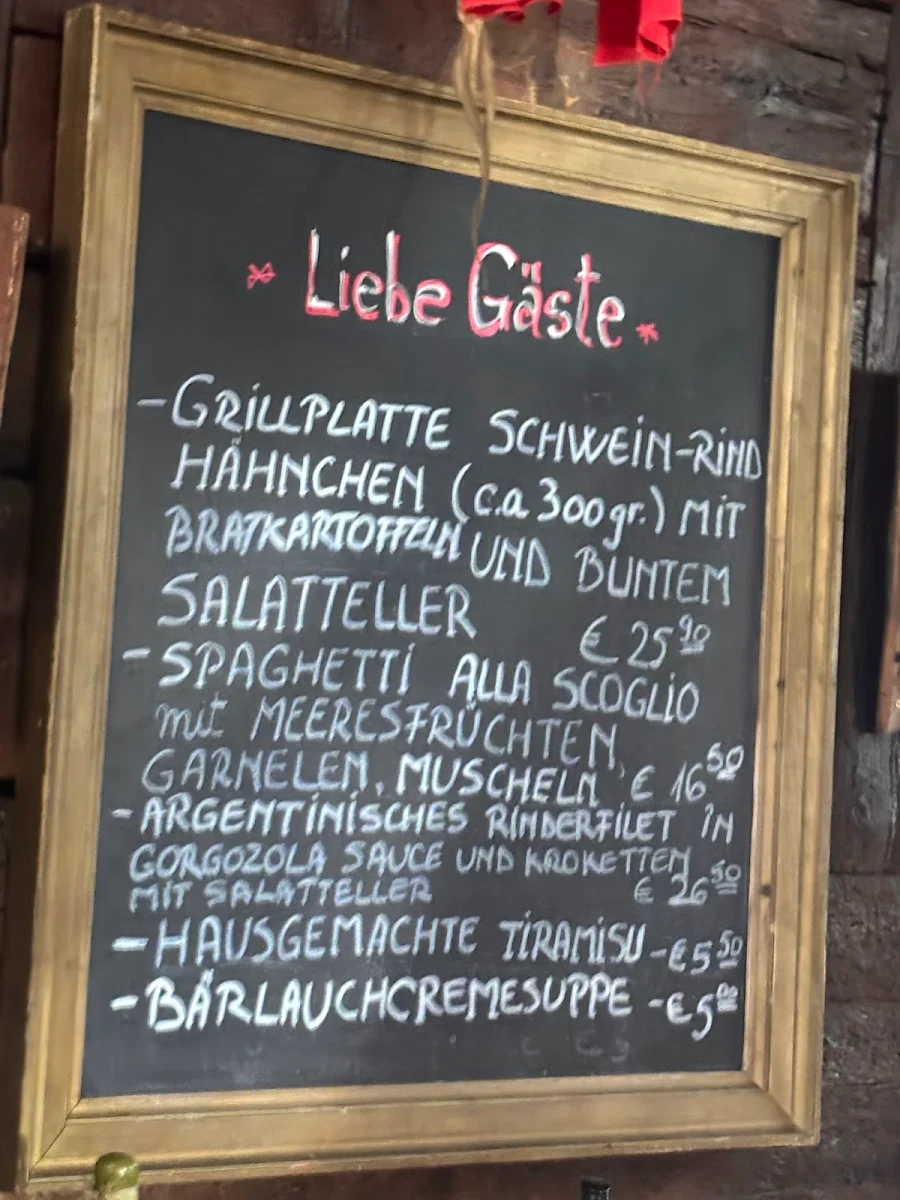 * Liebe Gäste *
- GRILLPLATTE SCHWEIN-RIND
HÄHNCHEN (c.a 300gr.) MIT
BRATKARTOFFELN UND BUNTEM
SALATTELLER € 25,90
- SPAGHETTI ALLA SCOGLIO
mit MEERESFRÜCHTEN,
GARNELEN, MUSCHELN € 16,50
- ARGENTINISCHES RINDERFILET IN
GORGOZOLA SAUCE UND KROKETTEN
MIT SALATTELLER € 26,50
- HAUSGEMACHTE TIRAMISU - € 5,50
- BÄRLAUCHCREMESUPPE - € 5,00